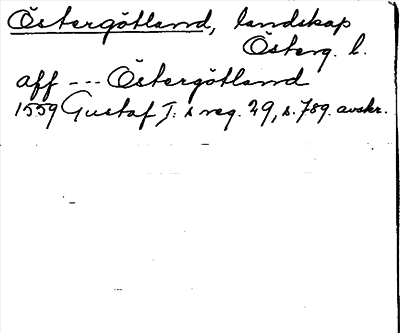 Östergötland, landskap
Österg. l.
aff --- Östergötland
1559 Gustaf I:s reg. 29, s. 789. avskr.